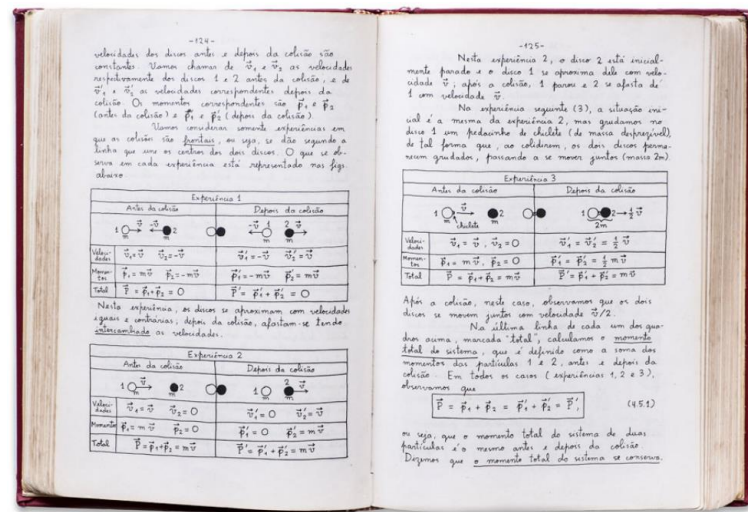 -124-
velocidades dos discos antes e depois da colisão são
constantes. Vamos chamar de v⃗₁ e v⃗₂ as velocidades
respectivamente dos discos 1 e 2 antes da colisão, e de
v⃗₁' e v⃗₂' as velocidades correspondentes depois da
colisão. Os momentos correspondentes são p⃗₁ e p⃗₂
(antes da colisão) e p⃗₁' e p⃗₂' (depois da colisão).
Vamos considerar somente experiências em
que as colisões são frontais, ou seja, se dão segundo a
linha que une os centros dos dois discos. O que se ob-
serva em cada experiência está representado nas figs.
abaixo.
Experiência 1
Antes da colisão Depois da colisão
1 v⃗ -v⃗ 2 -v⃗ 1 2 v⃗
m m m m
Veloci-dades v⃗₁ = v⃗ v⃗₂ = -v⃗ v⃗₁' = -v⃗ v⃗₂' = v⃗
Momentos p⃗₁ = m v⃗ p⃗₂ = -m v⃗ p⃗₁' = -m v⃗ p⃗₂' = m v⃗
Total P⃗ = p⃗₁ + p⃗₂ = 0 P⃗' = p⃗₁' + p⃗₂' = 0
Nesta experiência, os discos se aproximam com velocidades
iguais e contrárias; depois da colisão, afastam-se tendo
intercambiado as velocidades.
Experiência 2
Antes da colisão Depois da colisão
1 v⃗ 2 1 2 v⃗
m m m m
Veloci-dades v⃗₁ = v⃗ v⃗₂ = 0 v⃗₁' = 0 v⃗₂' = v⃗
Momentos p⃗₁ = m v⃗ p⃗₂ = 0 p⃗₁' = 0 p⃗₂' = m v⃗
Total P⃗ = p⃗₁ + p⃗₂ = m v⃗ P⃗' = p⃗₁' + p⃗₂' = m v⃗
-125-
Nesta experiência 2, o disco 2 está inicial-
mente parado e o disco 1 se aproxima dele com velo-
cidade v⃗; após a colisão, 1 parou e 2 se afasta de
1 com velocidade v⃗.
Na experiência seguinte (3), a situação ini-
cial é a mesma da experiência 2, mas grudamos no
disco 1 um pedacinho de chiclete (de massa desprezível),
de tal forma que, ao colidirem, os dois discos perma-
necem grudados, passando a se mover juntos (massa 2m).
Experiência 3
Antes da colisão Depois da colisão
1 v⃗ 2 1 2 ½ v⃗
m chiclete m 2m
Veloci-dades v⃗₁ = v⃗, v⃗₂ = 0 v⃗₁' = v⃗₂' = ½ v⃗
Momen-tos p⃗₁ = m v⃗, p⃗₂ = 0 p⃗₁' = p⃗₂' = ½ m v⃗
Total P⃗ = p⃗₁ + p⃗₂ = m v⃗ P⃗' = p⃗₁' + p⃗₂' = m v⃗
Após a colisão, neste caso, observamos que os dois
discos se movem juntos com velocidade v⃗/2.
Na última linha de cada um dos qua-
dros acima, marcada "total", calculamos o momento
total do sistema, que é definido como a soma dos
momentos das partículas 1 e 2, antes e depois da
colisão. Em todos os casos (experiências 1, 2 e 3),
observamos que
P⃗ = p⃗₁ + p⃗₂ = p⃗₁' + p⃗₂' = P⃗', (4.5.1)
ou seja, que o momento total do sistema de duas
partículas é o mesmo antes e depois da colisão.
Dizemos que o momento total do sistema se conserva.